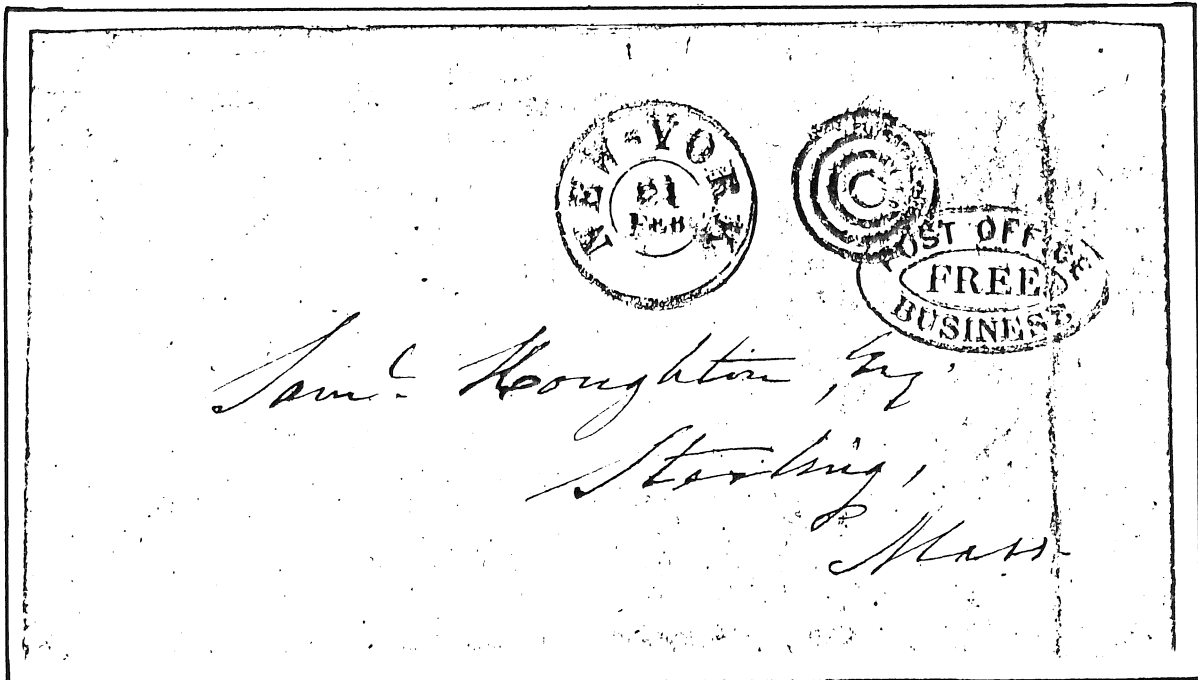 NEW-YORK
21
FEB
POST OFFICE
FREE
BUSINESS
Saml. Houghton, Esq.
Sterling,
Mass.